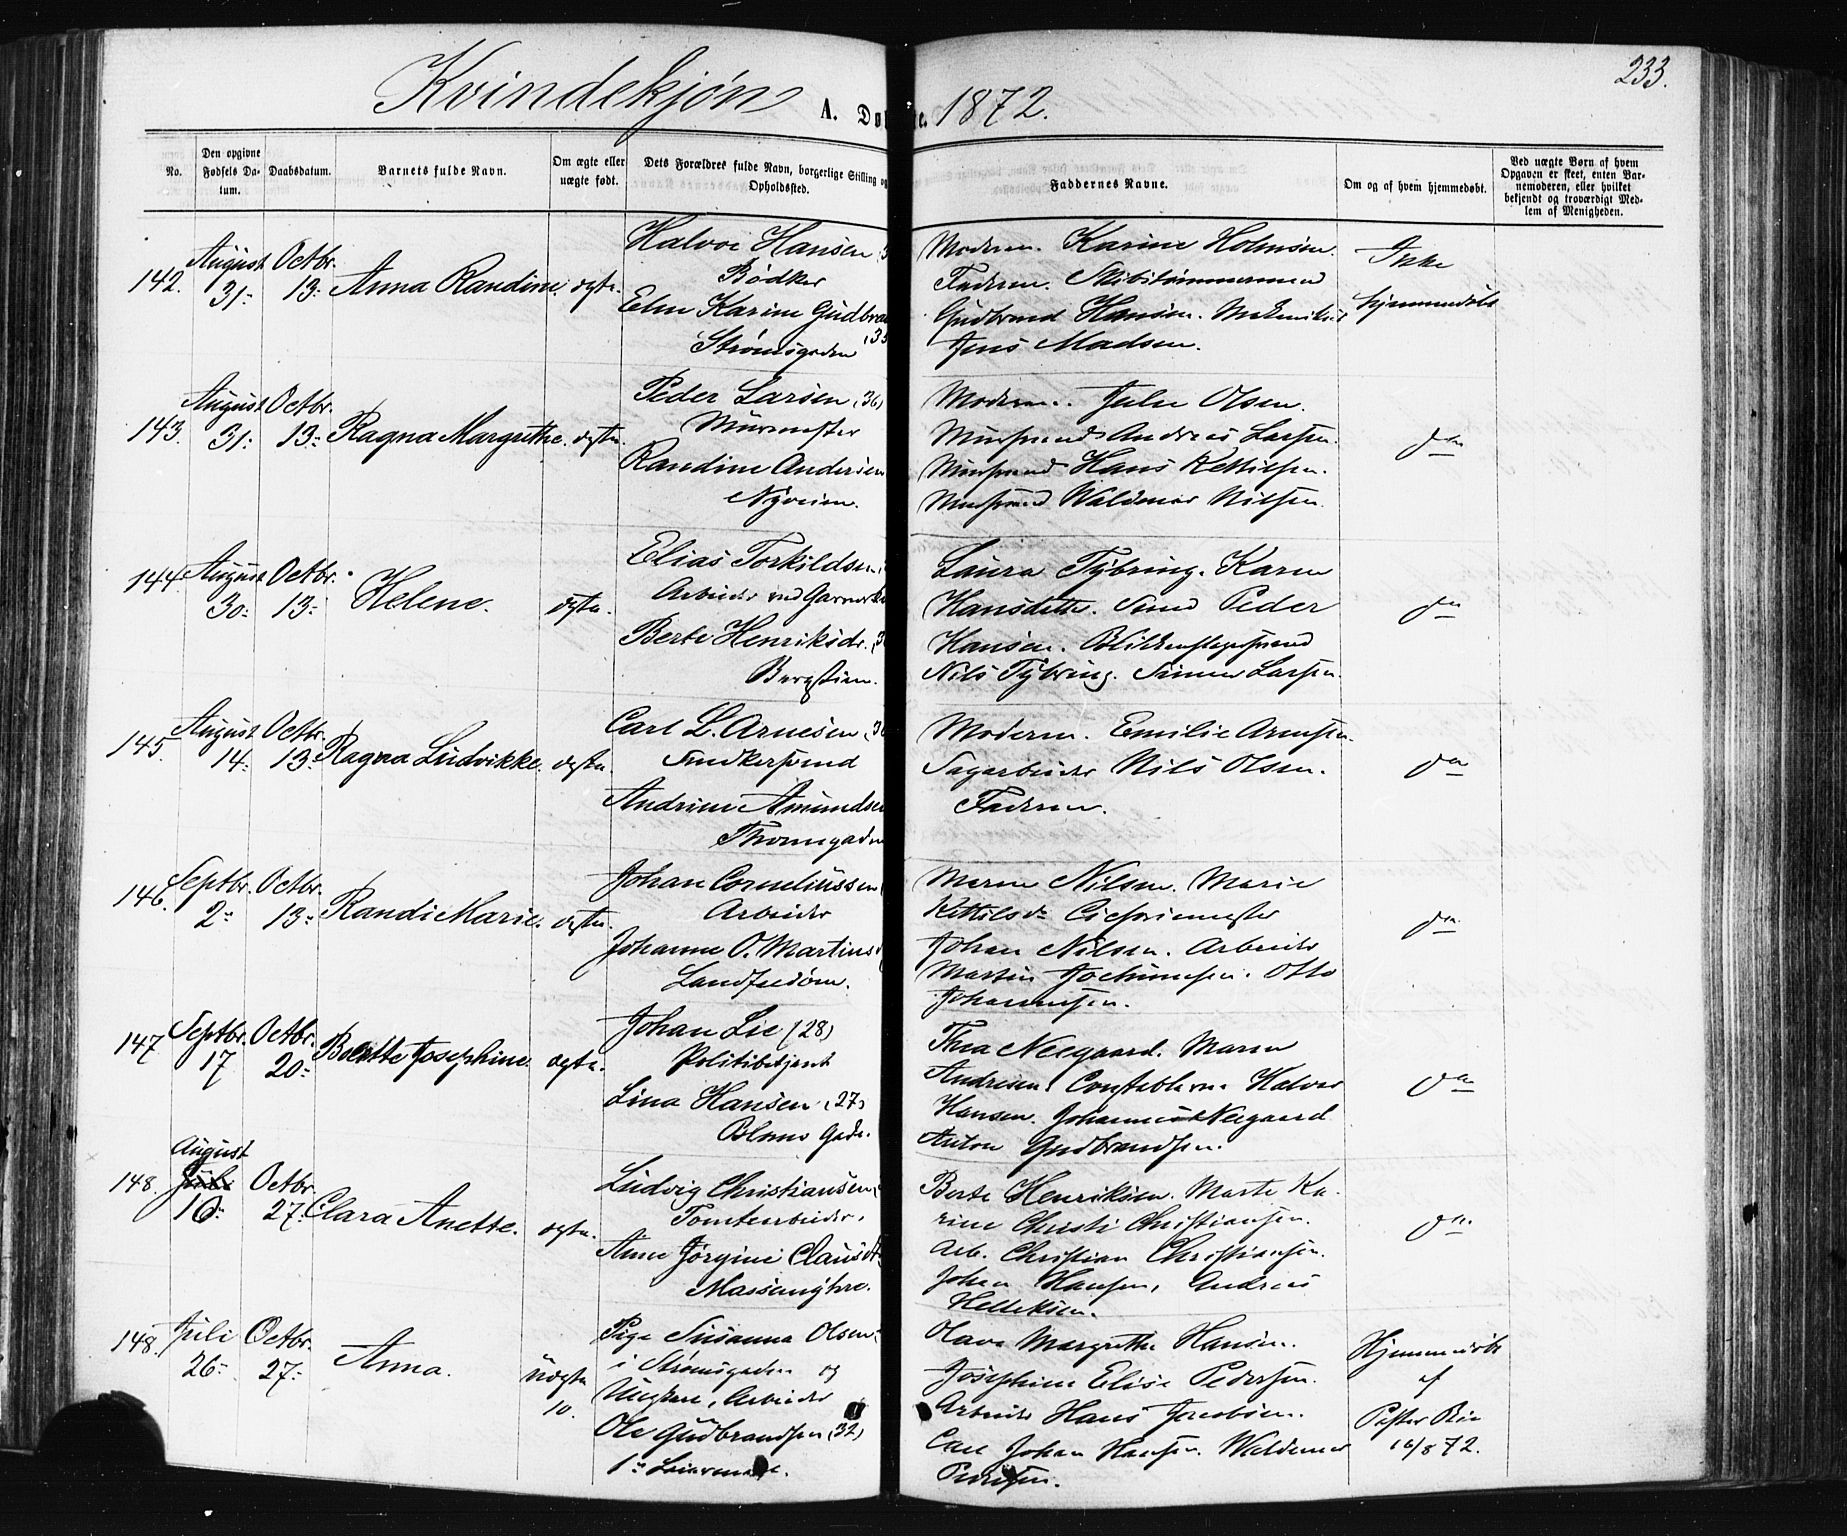 233.
Kvindekjøn A. Døbte. 1872.
No.
Den opgivne Fødsels Datum.
Daabsdatum.
Barnets fulde Navn.
Om ægte eller uægte født.
Dets Forældres fulde Navn, borgerlige Stilling og Opholdssted.
Faddernes Navne.
Om og af hvem hjemmedøbt.
Ved uægte Børn af hvem Opgaven er skeet, enten Barnemoderen, eller hvilket bekjendt og troværdigt Medlem af Menigheden.
142. August 31. Octbr. 13. Anna Randine. ægte.
Halvor Hansen
Bødker
Elen Karine Gudbra
Strømsgaden
Moderen. Karine Holmsen.
Faderen. Skibstømmermand
Gudbrand Hansen.
Jens Madsen.
Ikke
hjemmedøbt
143. August 31. Octbr. 13. Ragna Margrethe. ægte.
Peder Larsen (36)
Murmester
Randine Andersen
Nyveien.
Moderen. Julie Olsen.
Mursvend Andreas Larsen.
Mursvend Hans Kettilsen.
Mursvend Waldemar Nilsen.
do
144. August 30. Octbr. 13. Helene. ægte.
Elias Torkildsen
Arbeider ved Garveri
Berte Henriksdr.
Bergstien.
Laura Tybring. Karen
Hansdatter. Smed Peder
Hansen. Blikkenslagersvend
Nils Tybring. Larsen.
do
145. August 14. Octbr. 13. Ragna Ludvikke. ægte.
Carl L. Arnesen
Snedkersvend
Andrine Amundsen
Thornegaden
Moderen. Emilie Arnesen.
Sagarbeider Nils Olsen.
Faderen.
do
146. Septbr. 2. Octbr. 13. Randi Marie. ægte.
Johan Corneliussen
Arbeider
Johanne O. Martins
Landfaldøen.
Maren Nilsen. Marie
Kittilsdr.
Johan Nilsen. Arbeider
Martin Jochumsen. Otto
Johannesen.
do
147 Septbr. 17 Octbr. 20. Berthe Josephine. ægte.
Johan Lie (28)
Politibetjent
Lina Hansen (27)
Gade.
Thea Neegaard. Maren
Andresen. Constablerne Halvor
Hansen. Johannes Neegaard
Anton Gudbrandsen.
do
148. August 16. Octbr. 27. Clara Anette. ægte.
Ludvig Christiansen
Tomtearbeider,
Anne Jørgine Clausdt
Berte Henriksen. Marte Ka-
rine Christi Christiansen.
Arb. Christian Christiansen.
Johan Hansen, Andreas
Helleksen.
do
148. Juli 26. Octbr. 27. Anna. Uægte 10.
Pige Susanna Olsen
i Strømsgaden og
Ungkarl, Arbeider
Ole Gudbrandsen (32)
1ste Leiermaal.
Olava Margrethe Hansen.
Josephine Elise Pedersen.
Arbeider Hans Jacobsen.
Carl Johan Hansen. Waldemar
Pedersen.
Hjemmedøbt
af
Pastor
16/8 72.